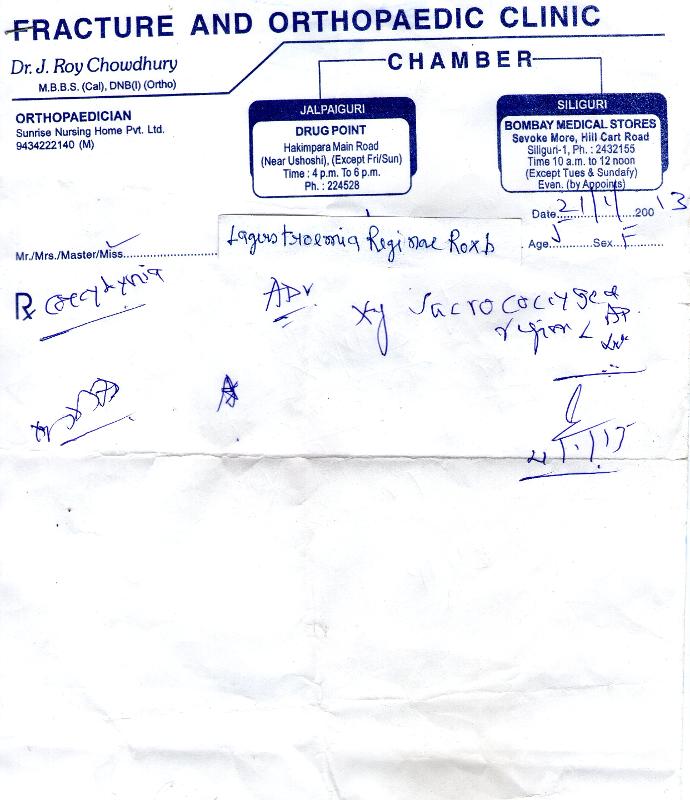 FRACTURE AND ORTHOPAEDIC CLINIC
Dr. J. Roy Chowdhury
M.B.B.S. (Cal), DNB(I) (Ortho)
ORTHOPAEDICIAN
Sunrise Nursing Home Pvt. Ltd.
9434222140 (M)
CHAMBER
JALPAIGURI
DRUG POINT
Hakimpara Main Road
(Near Ushoshi), (Except Fri/Sun)
Time : 4 p.m. To 6 p.m.
Ph. : 224528
SILIGURI
BOMBAY MEDICAL STORES
Sevoke More, Hill Cart Road
Siliguri-1, Ph. : 2432155
Time 10 a.m. to 12 noon
(Except Tues & Sundafy)
Even. (by Appoints)
Date 21/1/ 200 13
Mr./Mrs./Master/Miss Lagerstroemia Reginae Roxb
Age Sex F
℞ coccydynia
ADV
Xy Sacrococcygeal
region AP